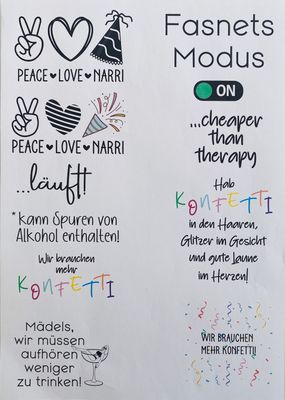 PEACE ♥ LOVE ♥ NARRI
PEACE ♥ LOVE ♥ NARRI
...läuft!
*kann Spuren von
Alkohol enthalten!
Wir brauchen
mehr
KONFETTI
Mädels,
wir müssen
aufhören
weniger
zu trinken!
Fasnets
Modus
ON
...cheaper
than
therapy
Hab
KONFETTI
in den Haaren,
Glitzer im Gesicht
und gute Laune
im Herzen!
WIR BRAUCHEN
MEHR KONFETTI!